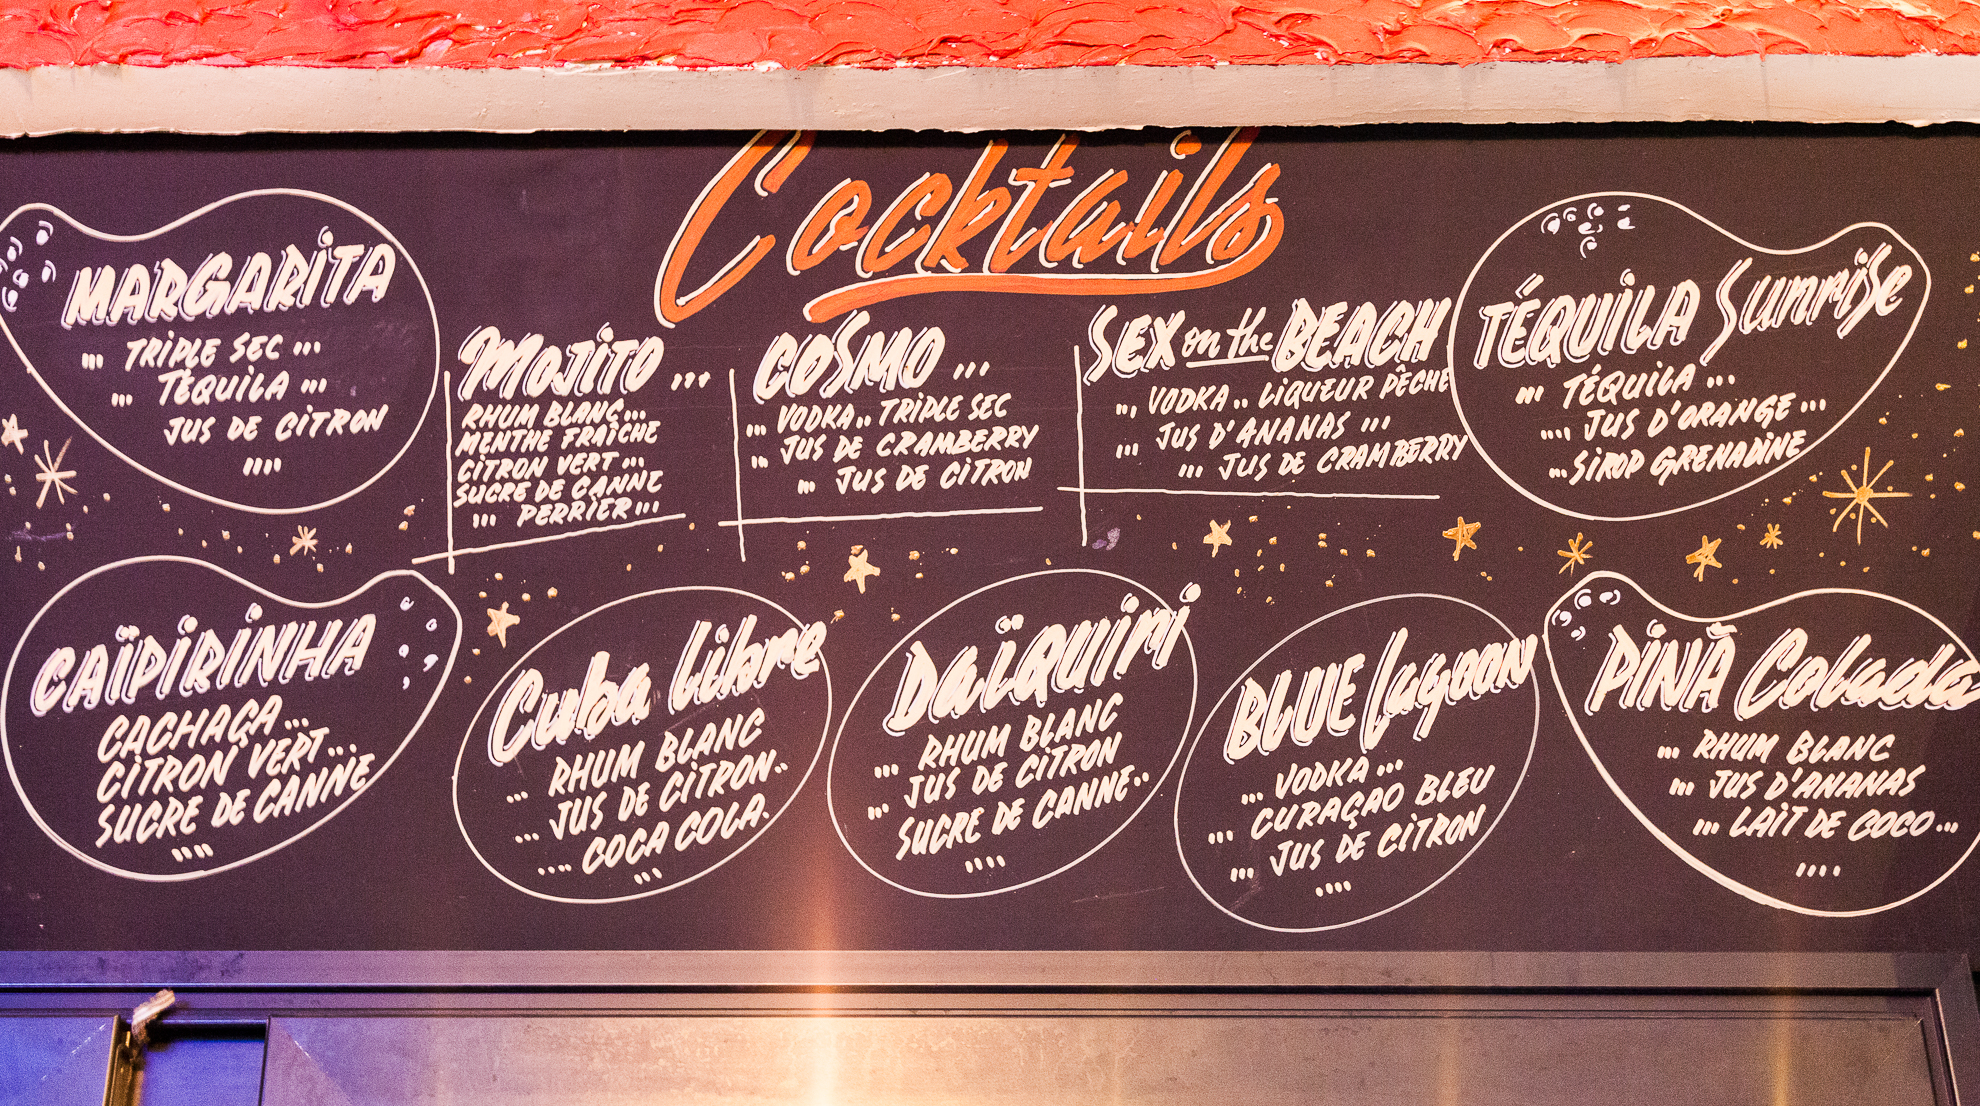 Cocktails
MARGARiTA
... TRiPLE SEC ...
... TEQUiLA ...
JUS DE CiTRON
....
MOJiTO ...
RHUM BLANC...
MENTHE FRAÎCHE
CiTRON VERT ...
SUCRE DE CANNE
... PERRiER ...
COSMO ...
... VODKA .. TRiPLE SEC
... JUS DE CRAMBERRY
... JUS DE CiTRON
SEX on the BEACH
... VODKA .. LiQUEUR PÊCHE
... JUS D'ANANAS ...
... JUS DE CRAMBERRY
TÉQUiLA SunriSe
... TÉQUiLA ...
.... JUS D'ORANGE ...
... SiROP GRENADiNE
CAÏPiRiNHA
CACHAÇA ...
CiTRON VERT ...
SUCRE DE CANNE
....
Cuba Libre
... RHUM BLANC
... JUS DE CiTRON..
.... COCA COLA.
...
DaïQUiri
... RHUM BLANC
... JUS DE CiTRON
SUCRE DE CANNE..
....
BLUE Lagoon
... VODKA ...
... CURAÇAO BLEU
... JUS DE CiTRON
....
PiNÃ Colada
... RHUM BLANC
... JUS D'ANANAS
... LAiT DE COCO ...
....